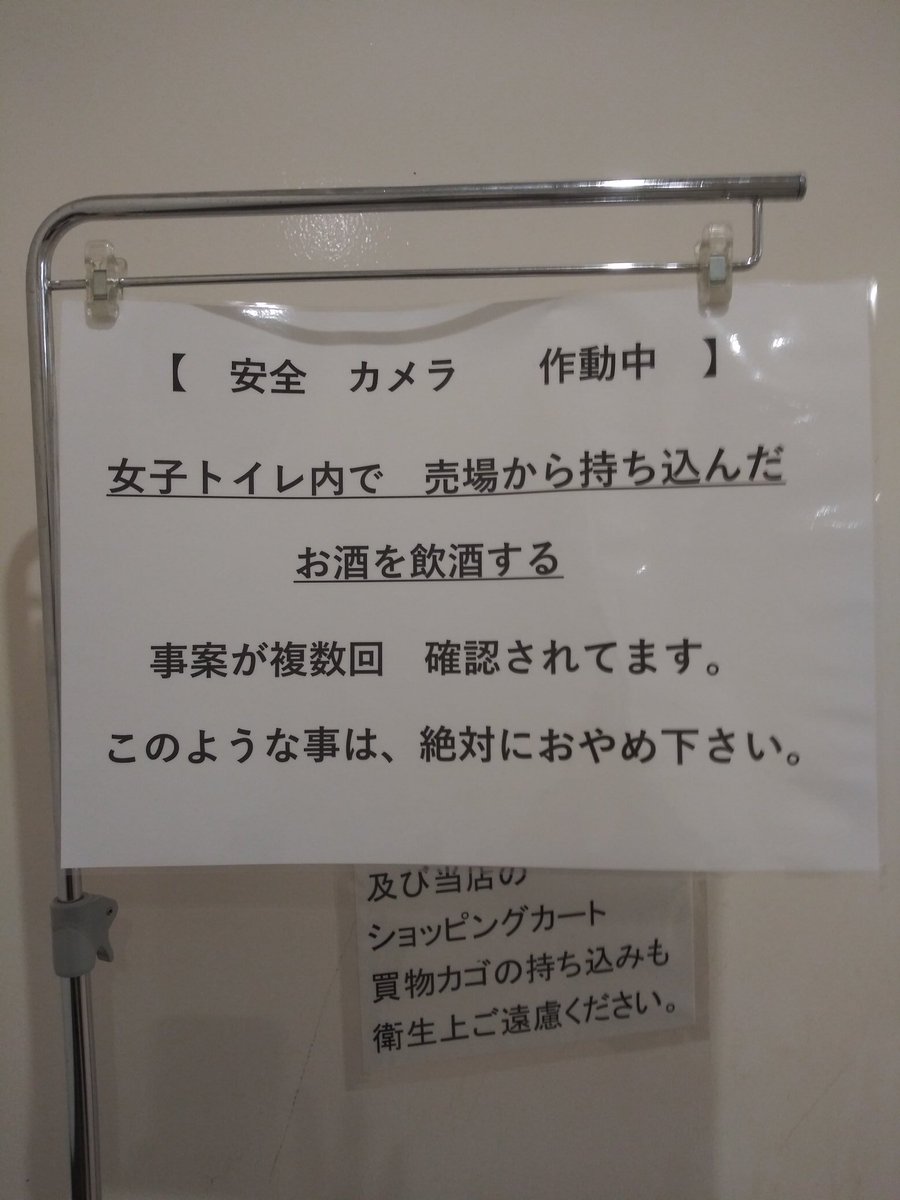 【　安全　カメラ　　作動中　】
女子トイレ内で　売場から持ち込んだ
お酒を飲酒する
事案が複数回　確認されてます。
このような事は、絶対におやめ下さい。
及び当店の
ショッピングカート
買物カゴの持ち込みも
衛生上ご遠慮ください。